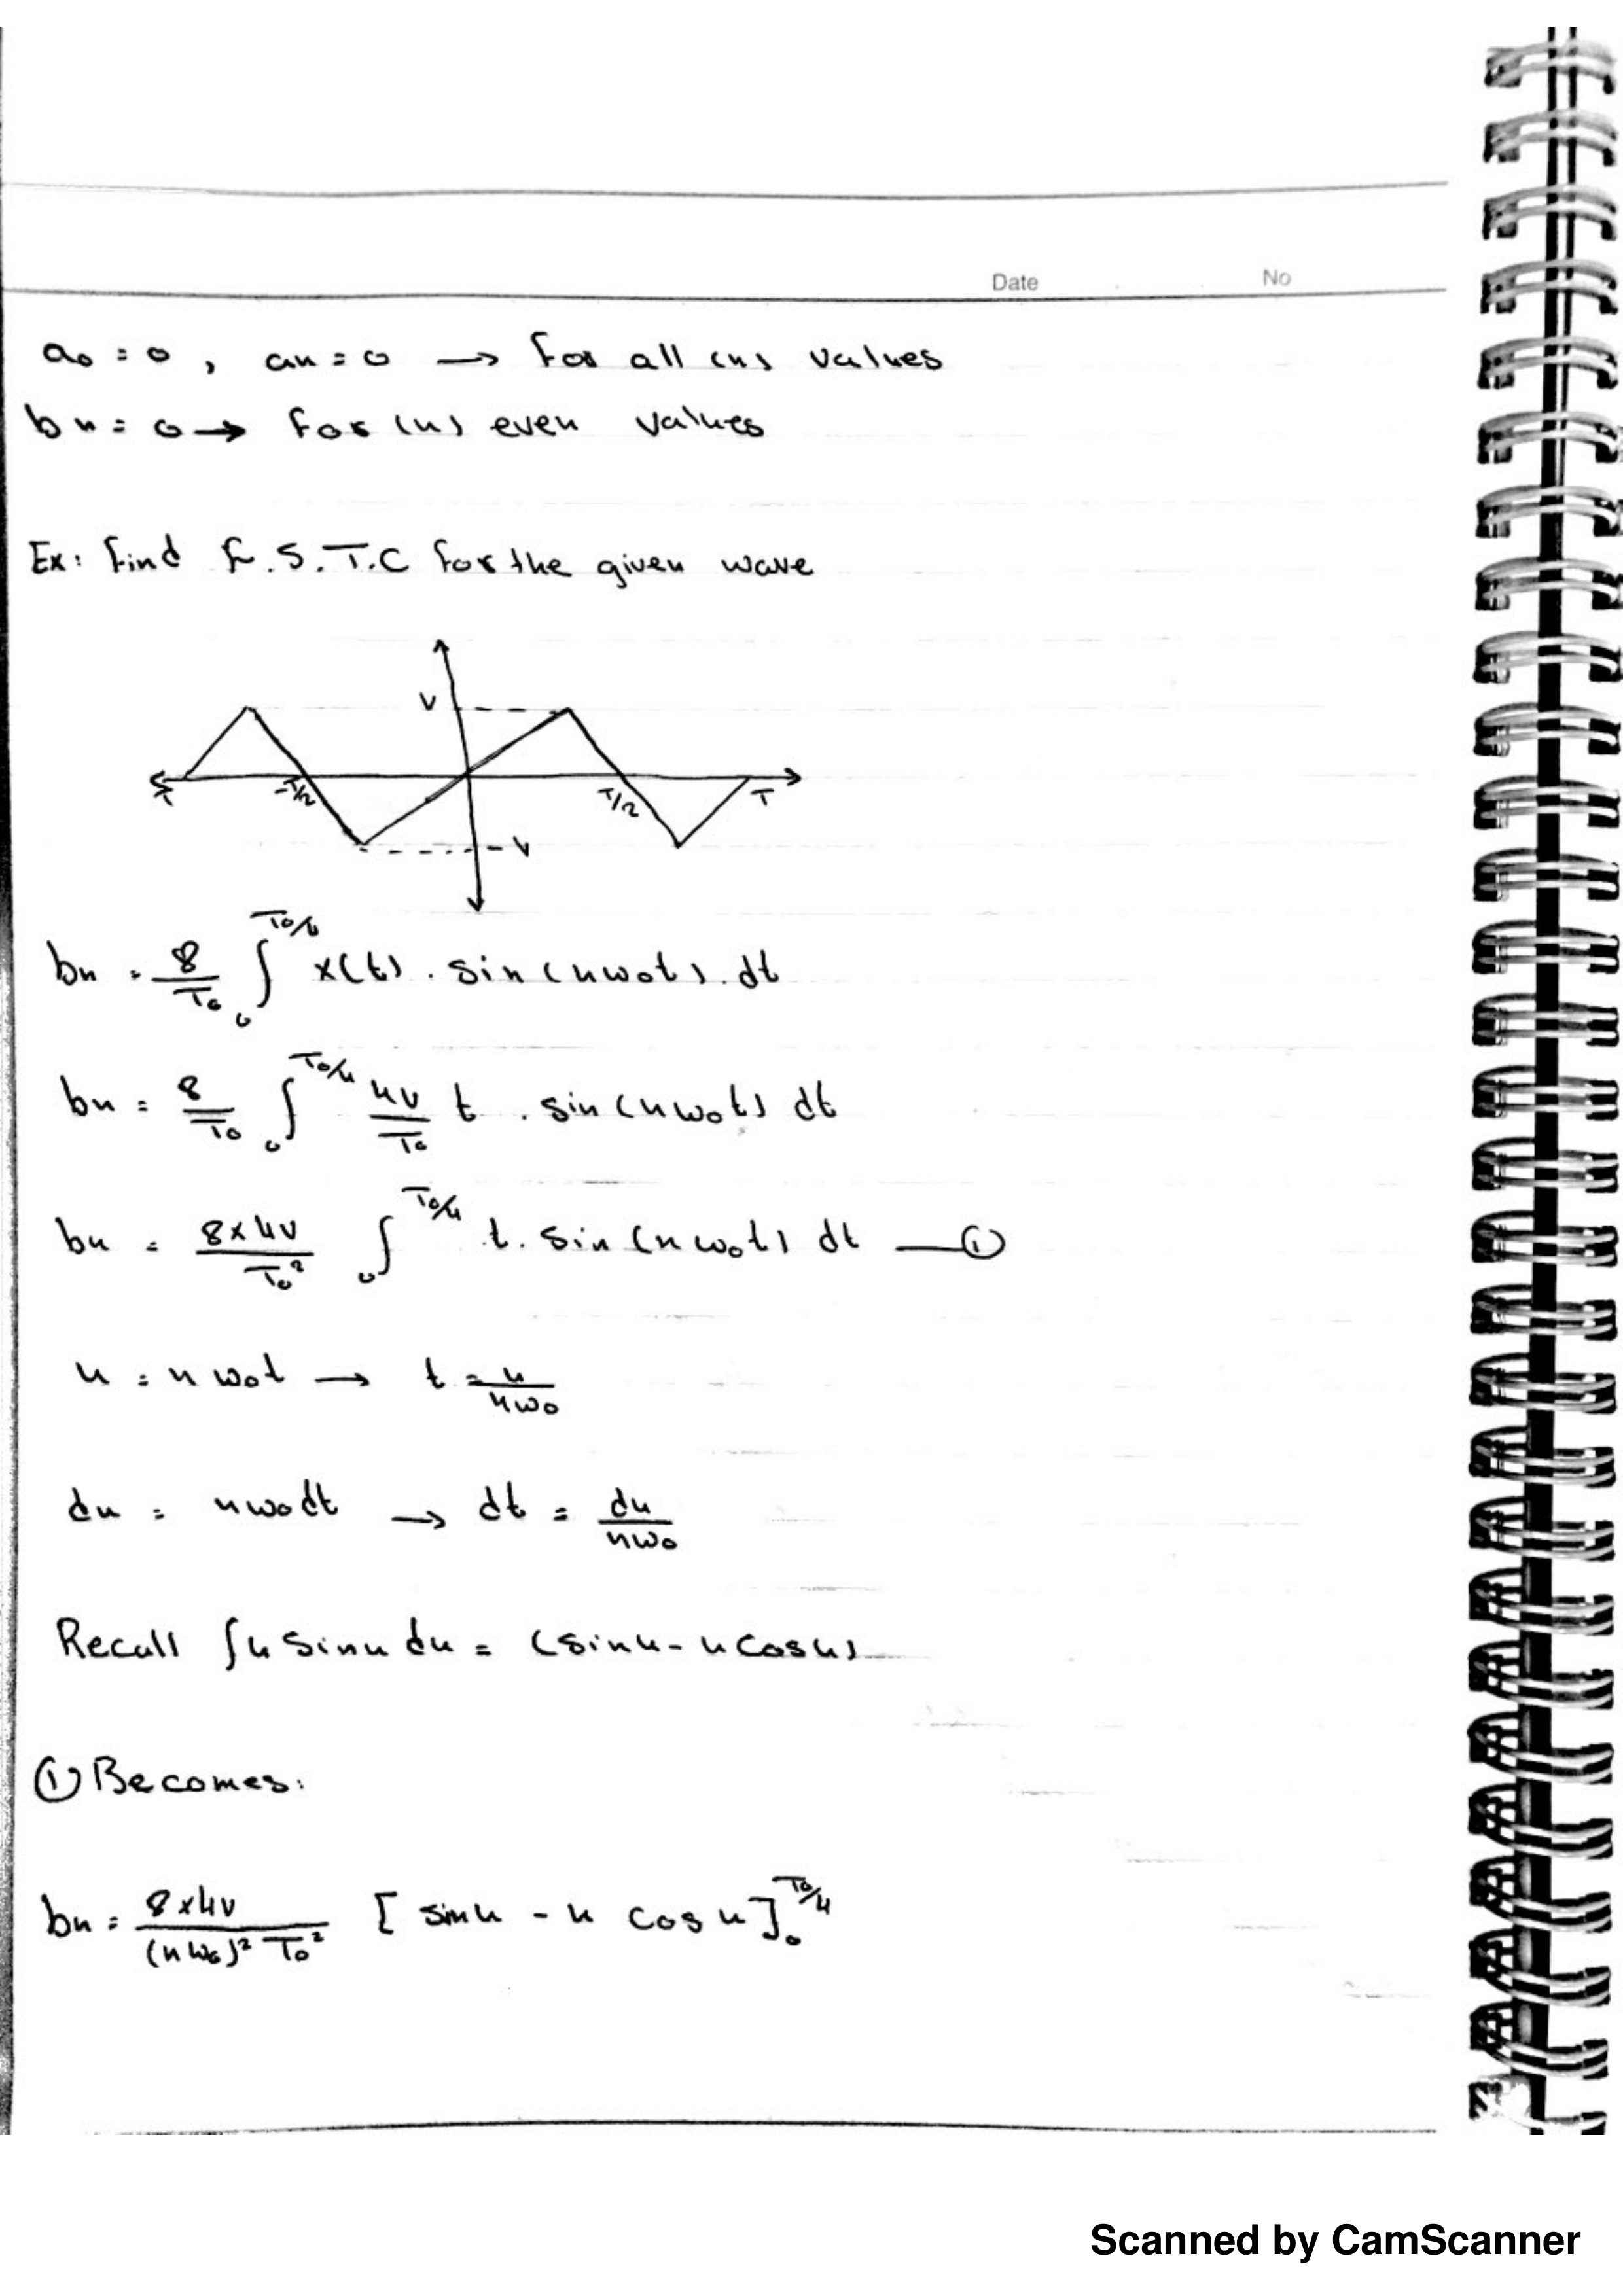 Date No
a₀ = 0 , an = 0 → for all (n) values
bn = 0 → for (n) even values
Ex: Find F.S.T.C for the given wave
V
-T -T/2 T/2 T
-V
bn = 8/T₀ ∫₀^(T₀/4) x(t) . sin(nω₀t) . dt
bn = 8/T₀ ∫₀^(T₀/4) 4V/T₀ t . sin(nω₀t) dt
bn = 8×4V/T₀² ∫₀^(T₀/4) t . sin(nω₀t) dt — ①
u = nω₀t → t = u/nω₀
du = nω₀dt → dt = du/nω₀
Recall ∫u sinu du = (sinu - u cosu)
① Becomes:
bn = 8×4V/(nω₀)² T₀² [sinu - u cosu]₀^(T₀/4)
Scanned by CamScanner